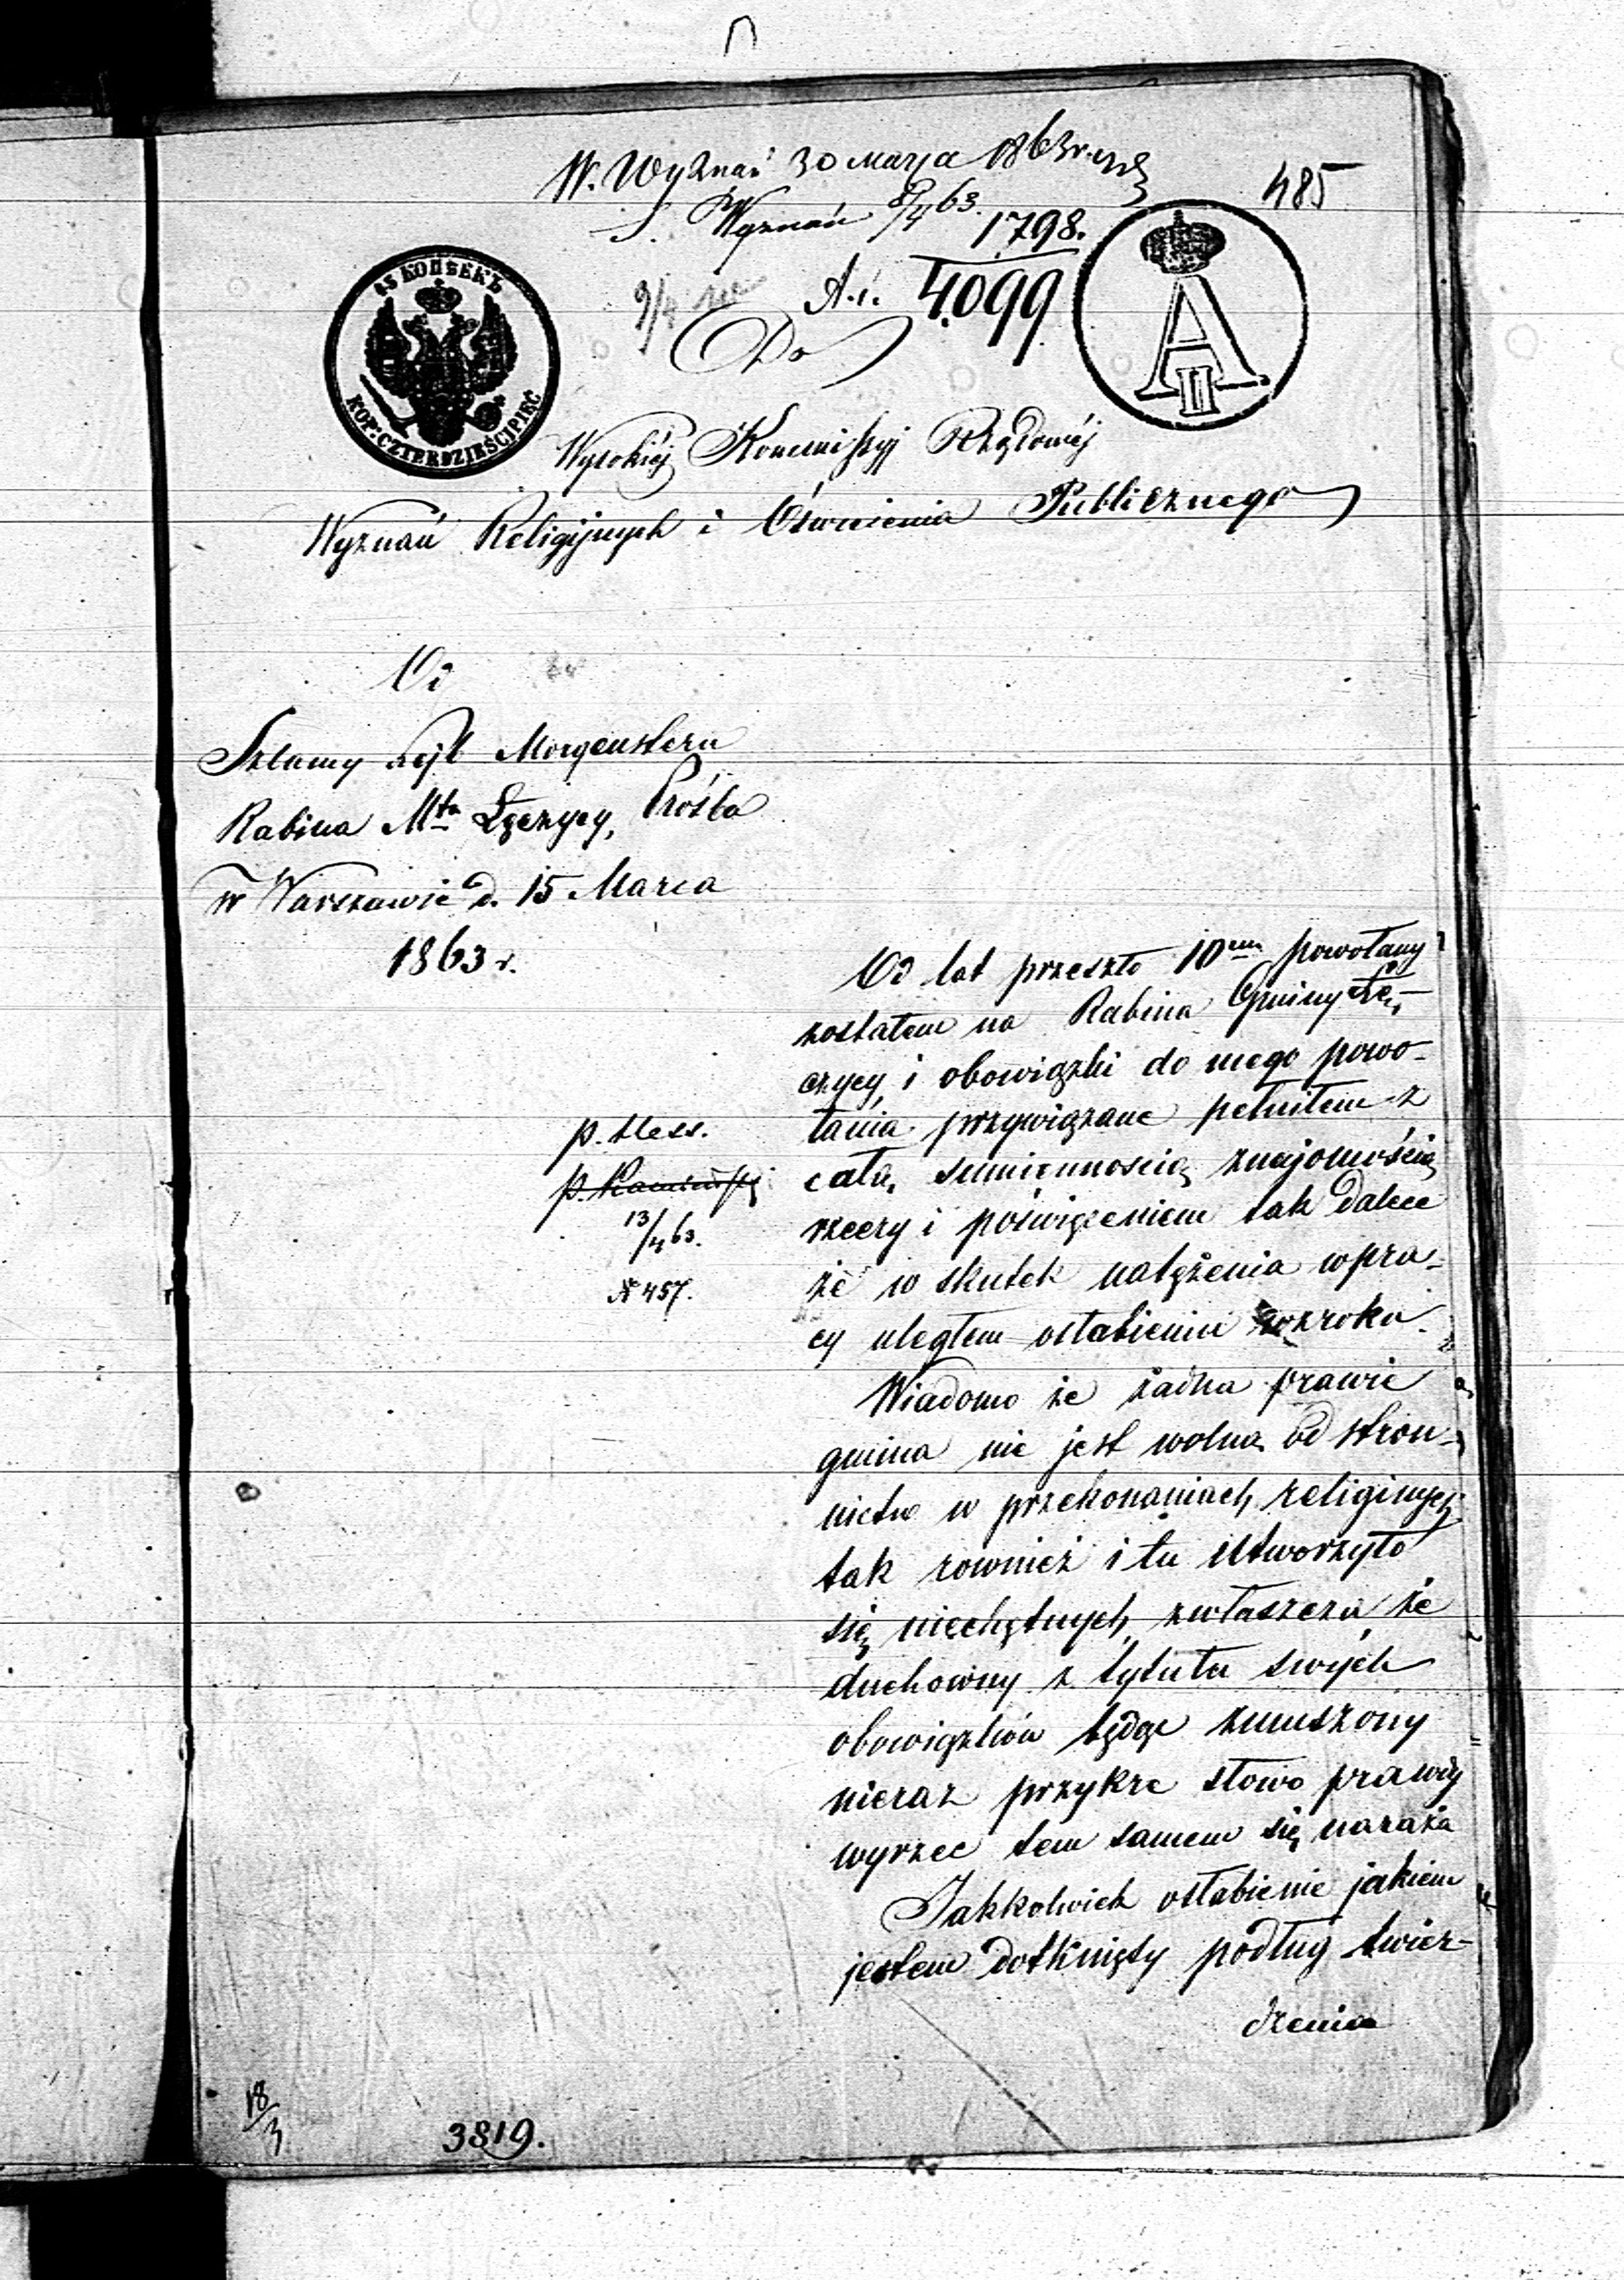 W. Wyznań 30 Marca 1863 r.
485
S. Wyznań 8/4 63.
1798.
45 КОПѢЕКЪ
KOP: CZTERDZIEŚCI PIĘĆ
9/4
A. i. 4099
A II
Do
Wysokiéj Kommissyj Rządowéj
Wyznań Religijnych i Oświecenia Publicznego
Od
Szlamy Lejb Morgenstern
Rabina Mta Łęczycy, Prośba
w Warszawie d. 15 Marca
1863 r.
Od lat przeszło 10em powołany
zostałem na Rabina Gminy Łę-
czycy, i obowiązki do mego powo-
łania przywiązane pełniłem z
całą sumiennoscią znajomością
rzeczy i poświęceniem tak dalece
że w skutek natężenia w pra-
cy uległem osłabieniu wzroku.
p. Hess.
p. Kamiński
13/4 63.
N 457.
Wiadomo że żadna prawie
gmina nie jest wolną od stron-
nictw w przekonaniach religinych
tak rownież i tu utworzyło
się niechętnych, zwłaszcza że
duchowny z tytułu swych
obowiązków będąc zmuszony
nieraz przykre słowo prawdy
wyrzec tem samem się naraża
Jakkolwiek osłabienie jakiem
jestem dotknięty podług twier-
dzenia
18/3
3819.